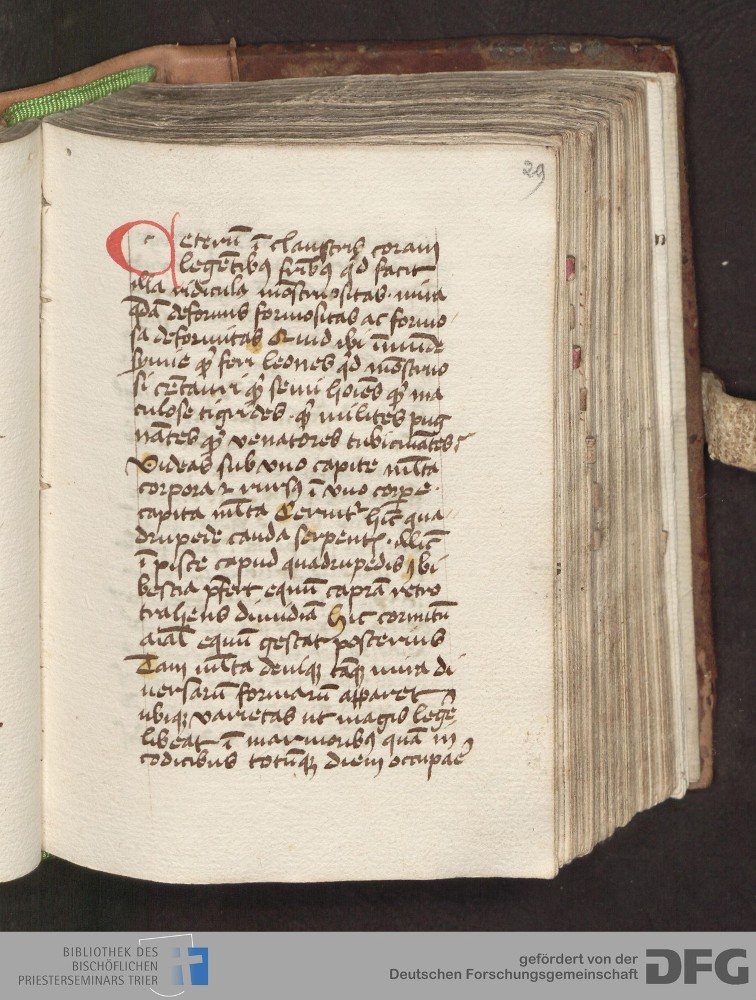 29
Ceterū ī claustris coram
legētibꝫ fr̄ibꝫ qͥd facit
illa ridicula mōstruositas . mira
q̄dā deformis formositas ac formo
sa deformitas Quid ibi īmūde
symie qͥd feri leones qͥd mōstruo
si cētauri qͥd semi hoīes qͥd ma
culose tigrides . qͥd milites pug
nātes qͥd venatores tubicinātes
Videas sub vno capite ml̄ta
corpora ⁊ rursꝫ ī vno corpe
capita ml̄ta Cernit᷑ hīc qua
drupede cauda serpentꝭ . illīc
ī pisce capud quadrupedis Ibi
bestia p̄fert equū caprā retro
trahens dimidiā hic cornutū
aīal equū gestat posterius
Tam ml̄ta deniqꝫ tāqꝫ mira di
versarū formarū apparet
ubiqꝫ varietas ut magis lege᷑
libeat ī marmoribꝫ quā in
codicibus totūqꝫ diem occupae᷑
BIBLIOTHEK DES
BISCHÖFLICHEN
PRIESTERSEMINARS TRIER
gefördert von der
Deutschen Forschungsgemeinschaft
DFG